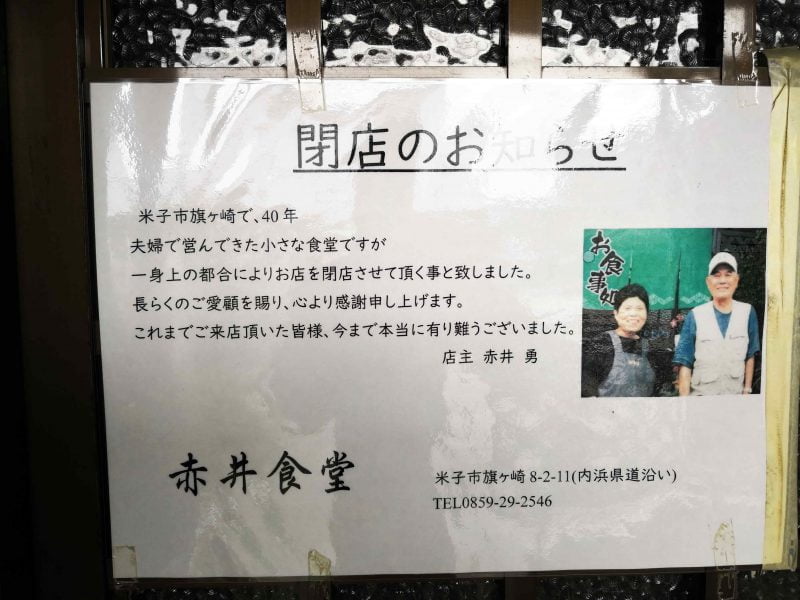 閉店のお知らせ
米子市旗ヶ崎で、40年
夫婦で営んできた小さな食堂ですが
一身上の都合によりお店を閉店させて頂く事と致しました。
長らくのご愛顧を賜り、心より感謝申し上げます。
これまでご来店頂いた皆様、今まで本当に有り難うございました。
店主 赤井 勇
お食事処
赤井食堂
米子市旗ヶ崎8-2-11(内浜県道沿い)
TEL0859-29-2546